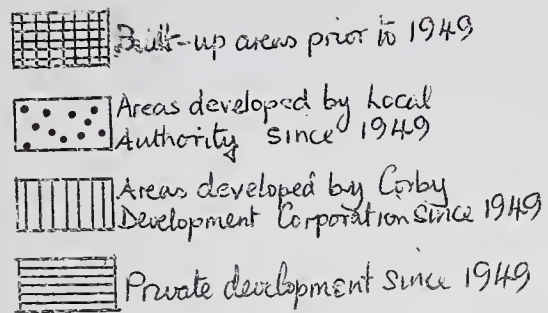 Built-up areas prior to 1949
Areas developed by Local
Authority since 1949
Areas developed by Corby
Development Corporation since 1949
Private development since 1949